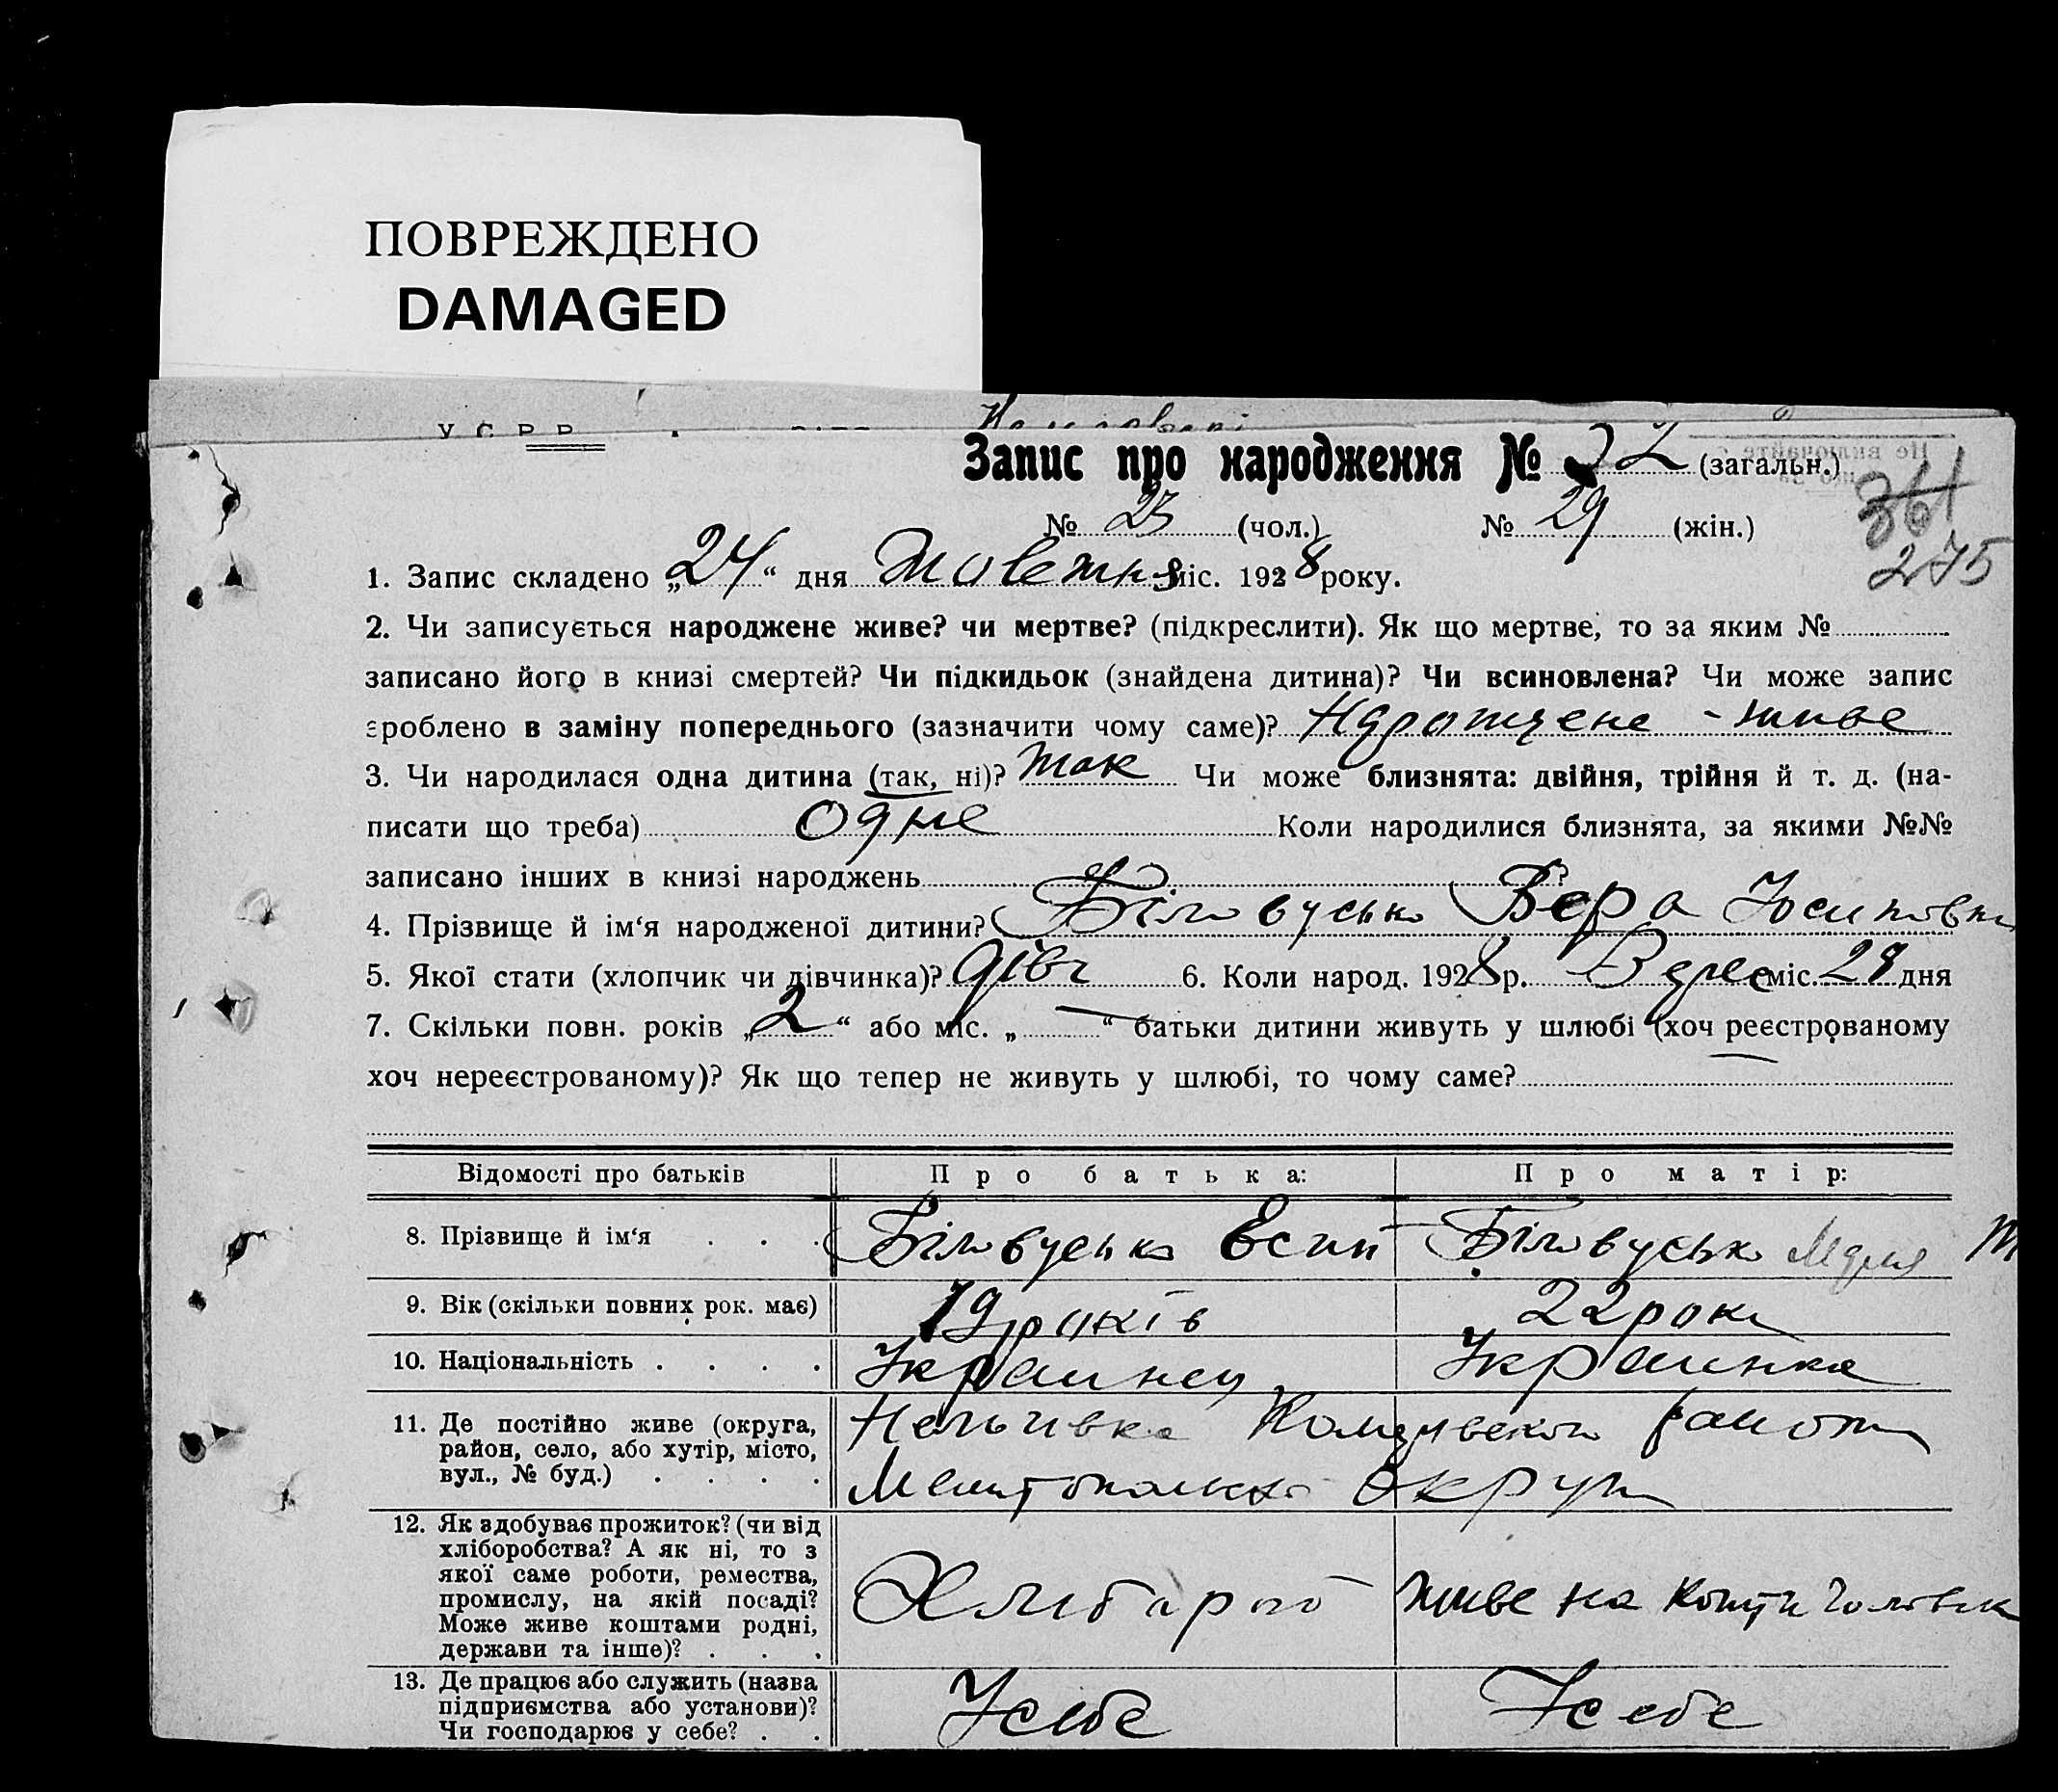 ПОВРЕЖДЕНО
DAMAGED
У С Р Р
Запис про народження № 52 (загальн.)
361
№ 23 (чол.) № 29 (жін.)
275
1. Запис складено „24“ дня Жовтня міс. 1928 року.
2. Чи записується народжене живе? чи мертве? (підкреслити). Як що мертве, то за яким №
записано його в книзі смертей? Чи підкидьок (знайдена дитина)? Чи всиновлена? Чи може запис
зроблено в заміну попереднього (зазначити чому саме)? живе
3. Чи народилася одна дитина (так, ні)? так Чи може близнята: двійня, трійня й т. д. (на-
писати що треба) Одне Коли народилися близнята, за якими №№
записано інших в книзі народжень ?
4. Прізвище й ім‘я народженої дитини? Біловусько Вера Юсиповна
5. Якої стати (хлопчик чи дівчинка)? дівч 6. Коли народ. 1928 р. Верес міс. 29 дня
7. Скільки повн. років „2“ або міс. „—“ батьки дитини живуть у шлюбі (хоч реєстрованому
хоч нереєстрованому)? Як що тепер не живуть у шлюбі, то чому саме? —
Відомості про батьків Про батька: Про матір:
8. Прізвище й ім‘я . . . Біловусько Есип Біловусько Мария
9. Вік (скільки повних рок. має) 19 років 22 роки
10. Національність . . . . Украинец Украинка
11. Де постійно живе (округа,
район, село, або хутір, місто,
вул., № буд.) . . . .
Мелитопольской Округи
12. Як здобуває прожиток? (чи від
хліборобства? А як ні, то з
якої саме роботи, ремества,
промислу, на якій посаді?
Може живе коштами родні,
держави та інше)? . . .
Хлибароб живе на кошти Чоловіка
13. Де працює або служить (назва
підприємства або установи)?
Чи господарює у себе? . .
У себе У себе